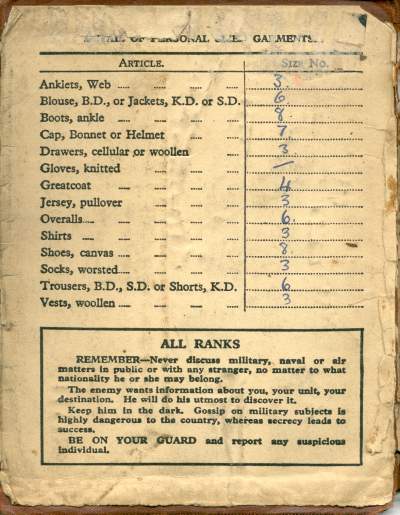 OF PERSONAL GARMENTS.
ARTICLE. SIZE NO.
Anklets, Web .... .... .... .... 3
Blouse, B.D., or Jackets, K.D. or S.D. 6
Boots, ankle .... .... .... .... 8
Cap, Bonnet or Helmet .... .... 7
Drawers, cellular or woollen .... 3
Gloves, knitted .... .... .... —
Greatcoat .... .... .... .... 4
Jersey, pullover .... .... .... 3
Overalls.... .... .... .... .... 6
Shirts .... .... .... .... .... 3
Shoes, canvas .... .... .... .... 8
Socks, worsted.... .... .... .... 3
Trousers, B.D., S.D. or Shorts, K.D. 6
Vests, woollen .... .... .... .... 3
ALL RANKS
REMEMBER—Never discuss military, naval or air
matters in public or with any stranger, no matter to what
nationality he or she may belong.
The enemy wants information about you, your unit, your
destination. He will do his utmost to discover it.
Keep him in the dark. Gossip on military subjects is
highly dangerous to the country, whereas secrecy leads to
success.
BE ON YOUR GUARD and report any suspicious
individual.